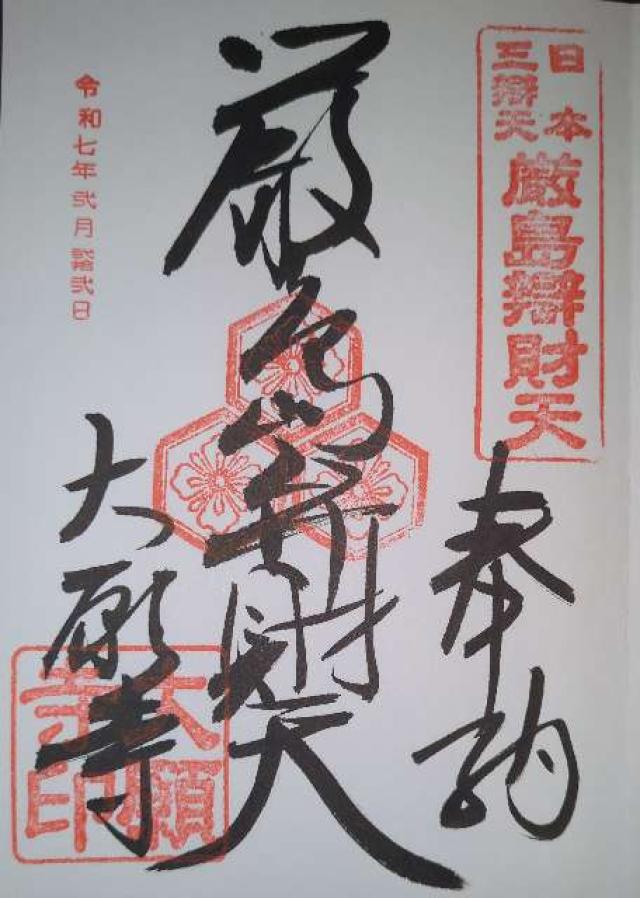 日本
三辯天
厳島辯財天
奉納
厳島弁財天
令和七年弐月拾弐日
大願寺
大願寺印